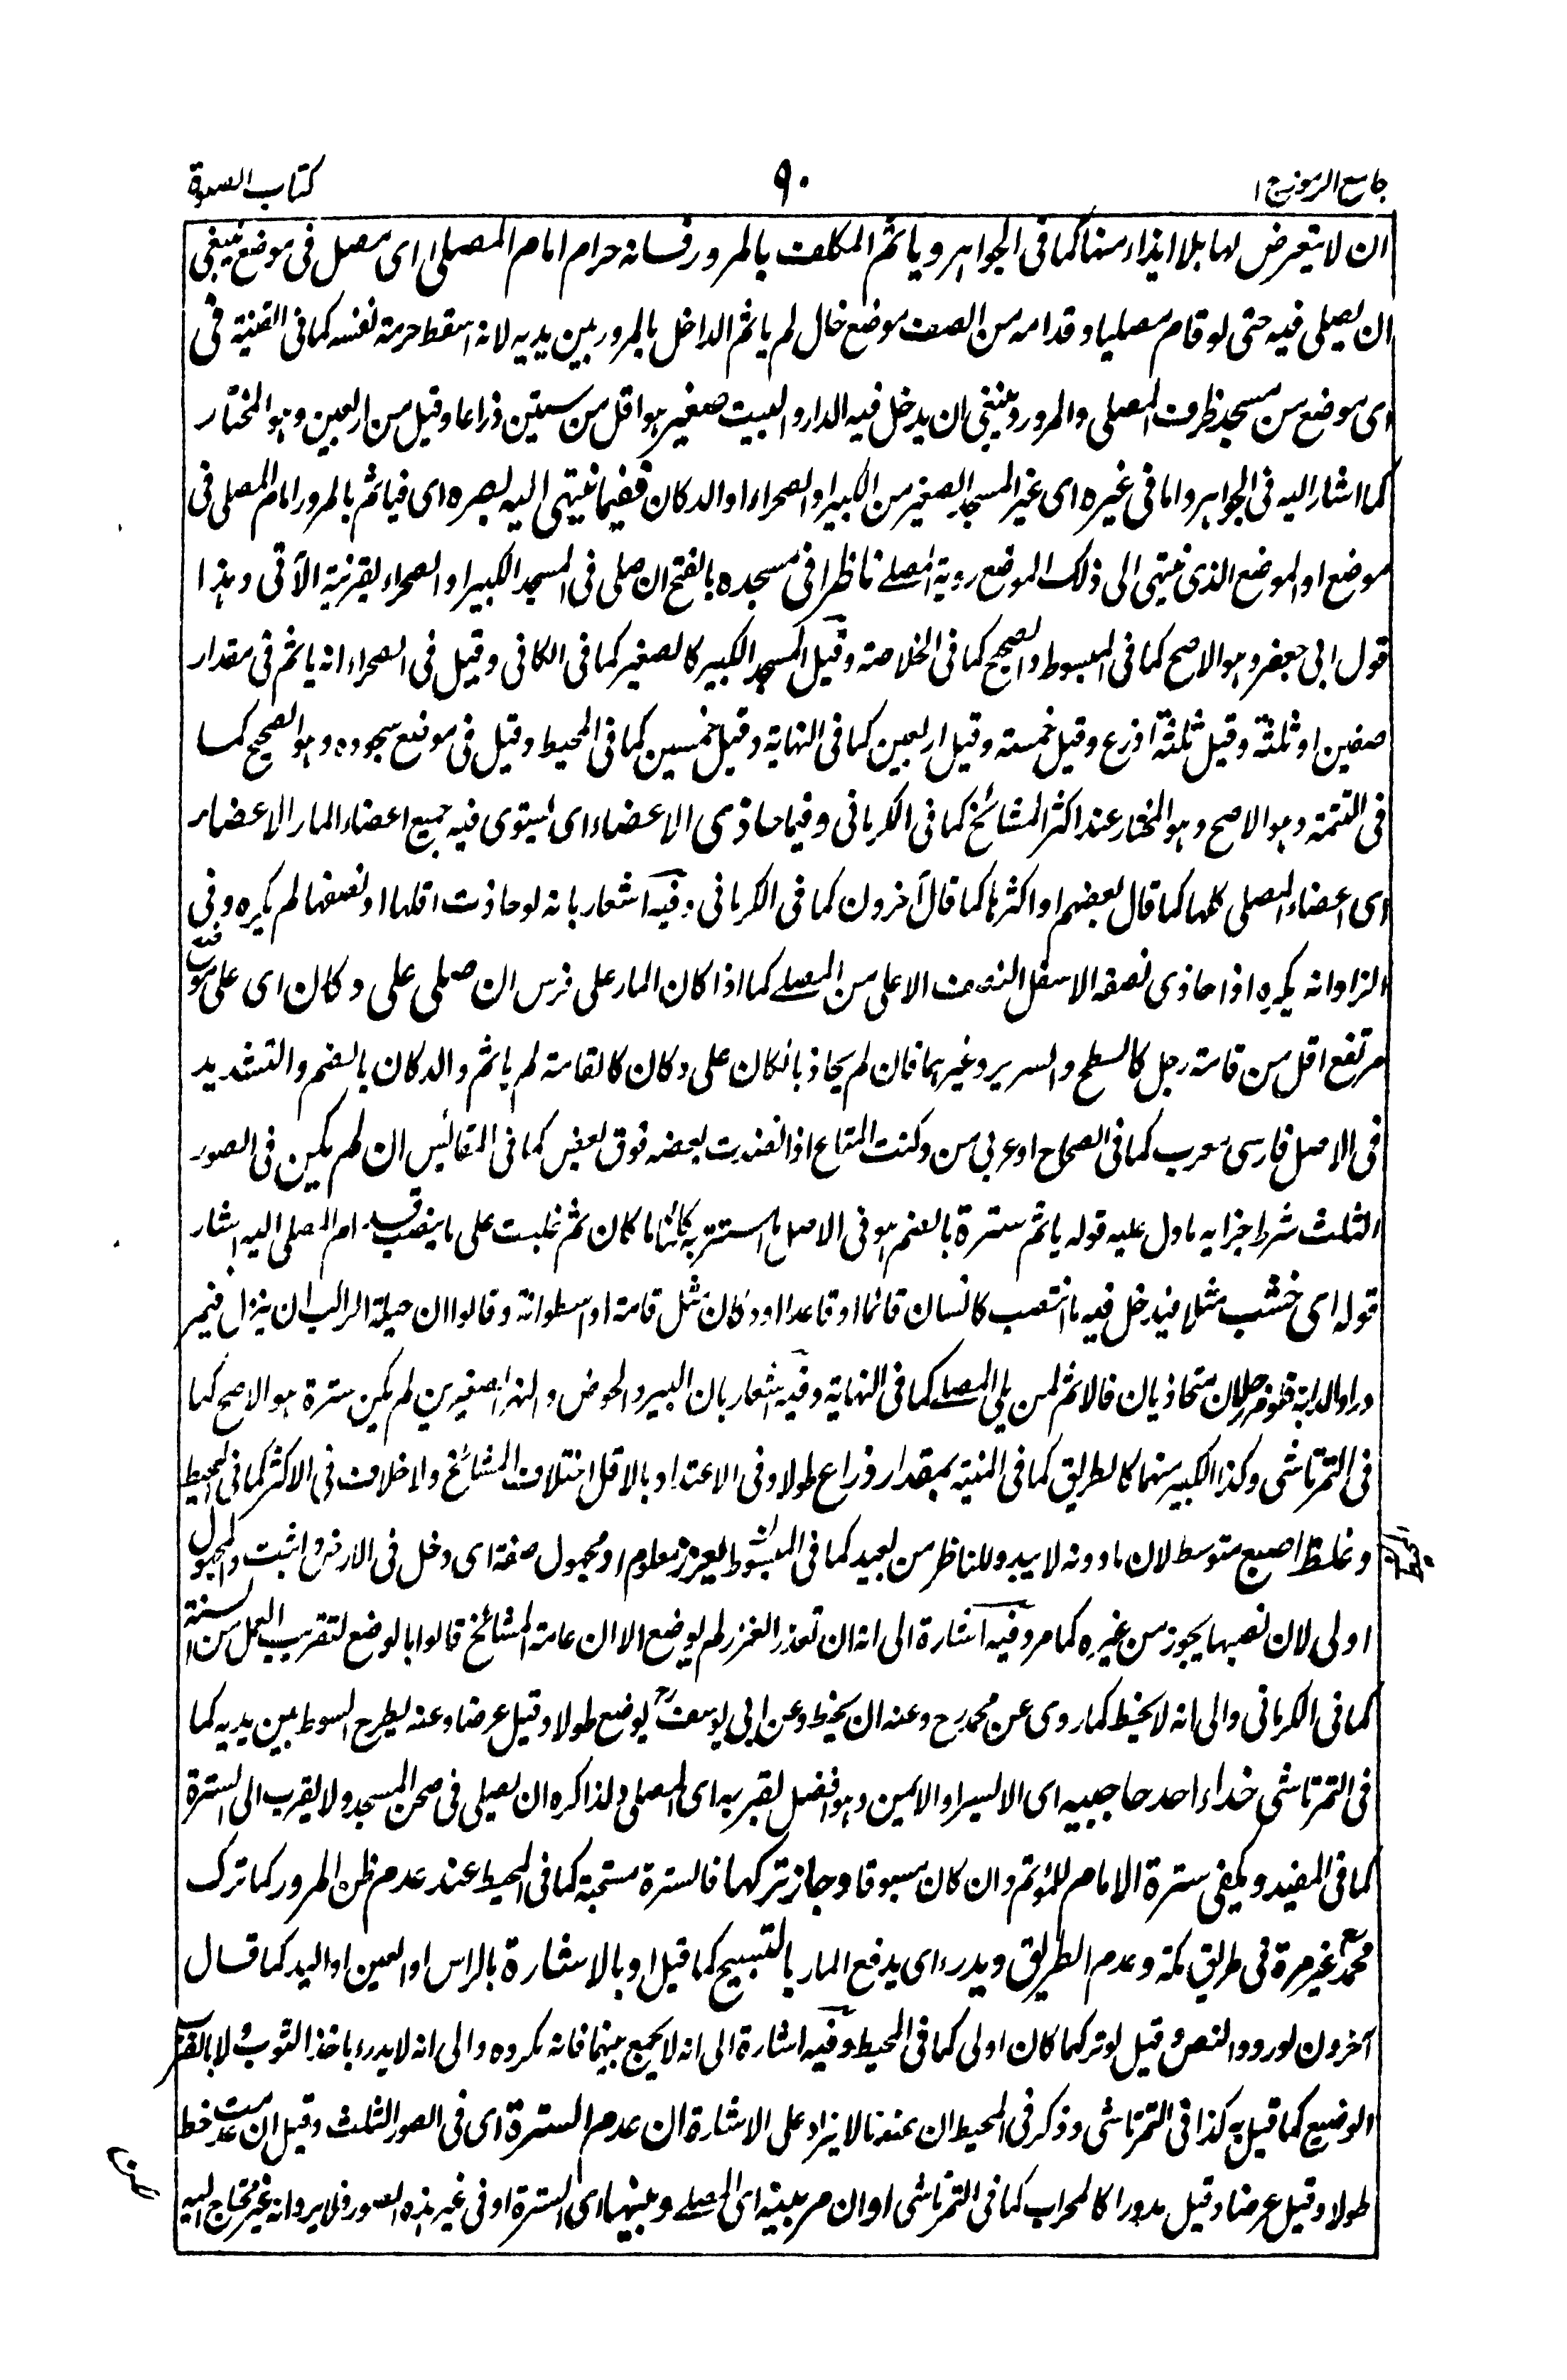 جامع الرموز ج ۱
۹۰
كتاب الصلوة
ان لا يتعرض لها بلا ايذاء منها كما فى الجواهر و ياثم المكلف بالمرور فسانه حرام امام المصلى اى مصل فى موضع ينبغى
ان يصلى فيه حتى لو قام مصليا و قدامه من الصف موضع خال لم ياثم الداخل بالمرور بين يديه لانه اسقط حرمة نفسه كما فى القنية فى
اى موضع من مسجد ظرف المصلى والمرور و ينبغى ان يدخل فيه الدار و البيت صغير هو اقل من ستين ذراعا و قيل من اربعين و هو المختار
كما اشار اليه فى الجواهر و اما فى غيره اى غير المسجد الصغير من الكبير او الصحراء او الدكان ففيما ينتهى اليه بصره اى فياثم بالمرور امام المصلى فى
موضع او الموضع الذى ينتهى الى ذلك الموضع روية المصلے ناظرا فى مسجده بالفتح ان صلى فى المسجد الكبير او الصحراء بقرينة الآتى و هذا
قول ابى جعفر و هو الاصح كما فى المبسوط والصحيح كما فى الخلاصة و قيل المسجد الكبير كالصغير كما فى الكافى و قيل فى الصحراء انه ياثم فى مقدار
صفين او ثلثة و قيل ثلثة اذرع و قيل خمسة و قيل اربعين كما فى النهاية و قيل خمسين كما فى المحيط و قيل فى موضع سجوده و هو الصحيح كما
فى التتمة و هو الاصح و هو المختار عند اكثر المشائخ كما فى الكرمانى و فيما حاذى الاعضاء اى يستوى فيه جميع اعضاء المار الاعضاء
اى اعضاء المصلى كلها كما قال بعضهم او اكثرها كما قال آخرون كما فى الكرمانى و فيه اشعار بانه لو حاذت اقلها او نصفها لم يكره و فى
الزاد انه يكره اذا حاذى نصفه الاسفل النصف الاعلى من المصلے كما اذا كان المار على فرس ان صلى على دكان اى على موضع
مرتفع اقل من قامة رجل كالسطح و السرير و غيرهما فان لم يحاذ بان كان على دكان كالقامة لم ياثم و الدكان بالضم و التشديد
فى الاصل فارسى معرب كما فى الصحاح او عربى من دكنت المتاع اذا نضدت بعضه فوق بعض كما فى المقائيس ان لم يكن فى الصور
الثلث شرط جزايه ما دل عليه قوله ياثم سترة بالضم هو فى الاصل ما استتر به كائنا ما كان ثم غلبت على ما ينصب قدام المصلى اليه اشار
قوله اى خشب مثلا فيدخل فيه ما انتصب كانسان قائما او قاعدا او دكان مثل قامة او اسطوانة و قالوا ان حيلة الراكب ان ينزل فيمر
وراء الدابة فلو مر رجلان متحاذيان فالاثم لمن يلى المصلے كما فى النهاية و فيه اشعار بان البير و الحوض و النهر الصغيرين لم يكن سترة هو الاصح كما
فى التمرتاشى و كذا الكبير منهما كالطريق كما فى المنية بمقدار ذراع طولا و فى الاعتداد بالاقل اختلاف المشائخ و لا خلاف فى الاكثر كما فى المحيط
و غلظ اصبع متوسط لان ما دونه لا يبدو للناظر من بعيد كما فى المبسوط يغرز معلوم او مجهول صفة اى دخل فى الارض و اثبت و المجهول
اولى لان نصبها يجوز من غيره كما مر و فيه اشارة الى انه ان تعذر الغرز لم يوضع الا ان عامة المشائخ قالوا بالوضع لتقريب العمل من السنة
كما فى الكرمانى و الى انه لا يخط كما روى عن محمد رح و عنه ان يخط و عن ابى يوسف رح يوضع طولا و قيل عرضا و عنه ليطرح السوط بين يديه كما
فى التمرتاشى حذاء احد حاجبيه اى الايسر او الايمن و هو افضل بقربه اى المصلى و لذا كره ان يصلى فى صحن المسجد و لا يقرب الى السترة
كما فى المفيد و يكفى سترة الامام للمؤتم و ان كان مسبوقا و جاز تركها فالسترة مستحبة كما فى المحيط عند عدم ظن المرور كما ترك
محمد رح غير مرة فى طريق مكة و عدم الطريق و يدرء اى يدفع المار بالتسبيح كما قيل او بالاشارة بالراس او العين او اليد كما قال
آخرون لورود النص و قيل لو تركهما كان اولى كما فى المحيط و فيه اشارة الى انه لا يجمع بينهما فانه مكروه و الى انه لا يدرء باخذ الثوب و لا بالضرب
الوضيع كما قيل به كذا فى التمرتاشى و ذكر فى المحيط ان عندنا لا يزاد على الاشارة ان عدم السترة اى فى الصور الثلث و قيل ان عدمت خط
طولا و قيل عرضا و قيل مدورا كالمحراب كما فى التمرتاشى او ان مر بينه اى المصلے و بينها اى السترة او فى غير هذه الصور فلا يرد انه غير محتاج اليه